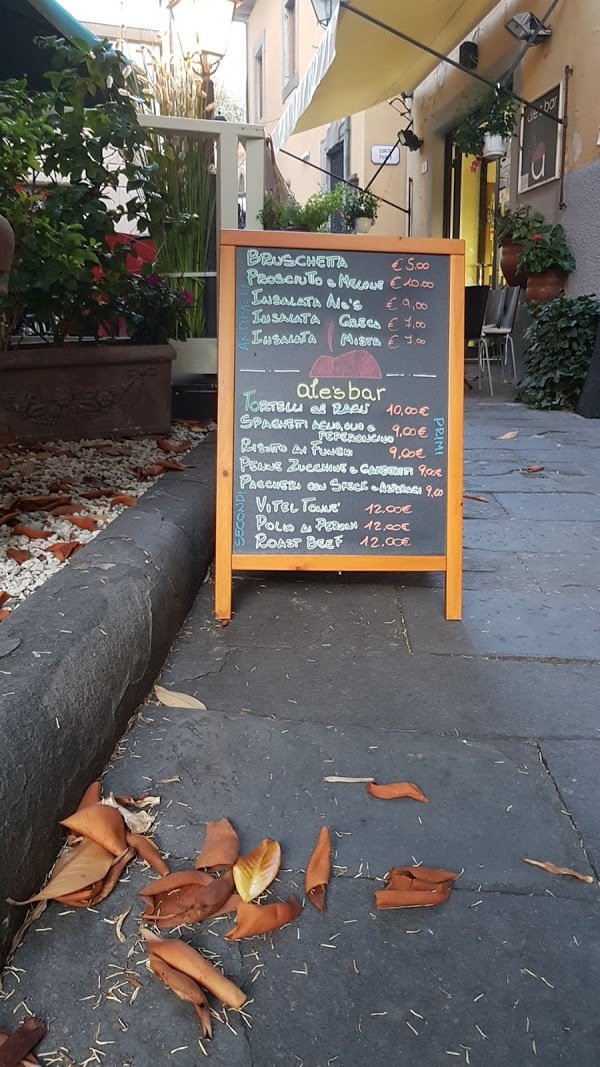 ale's bar
CORTE
BRUSCHETTA € 5.00
PROSCIUTTO e MELONE € 10.00
INSALATA Ale's € 9,00
INSALATA GRECA € 7,00
INSALATA MISTA € 7.00
ANTIPASTI
ale's bar
TORTELLI al RAGU' 10,00€
SPAGHETTI AGLIO, OLIO e
PEPERONCINO 9,00€
RISOTTO AI FUNGHI 9,00€
PENNE ZUCCHINE e GAMBERETTI 9,00€
PACCHERI CON SPECK e ASPARAGI 9,00
PRIMI
SECONDI
VITEL TONNE' 12.00€
POLLO AI PEPERONI 12.00€
ROAST BEEF 12,00€